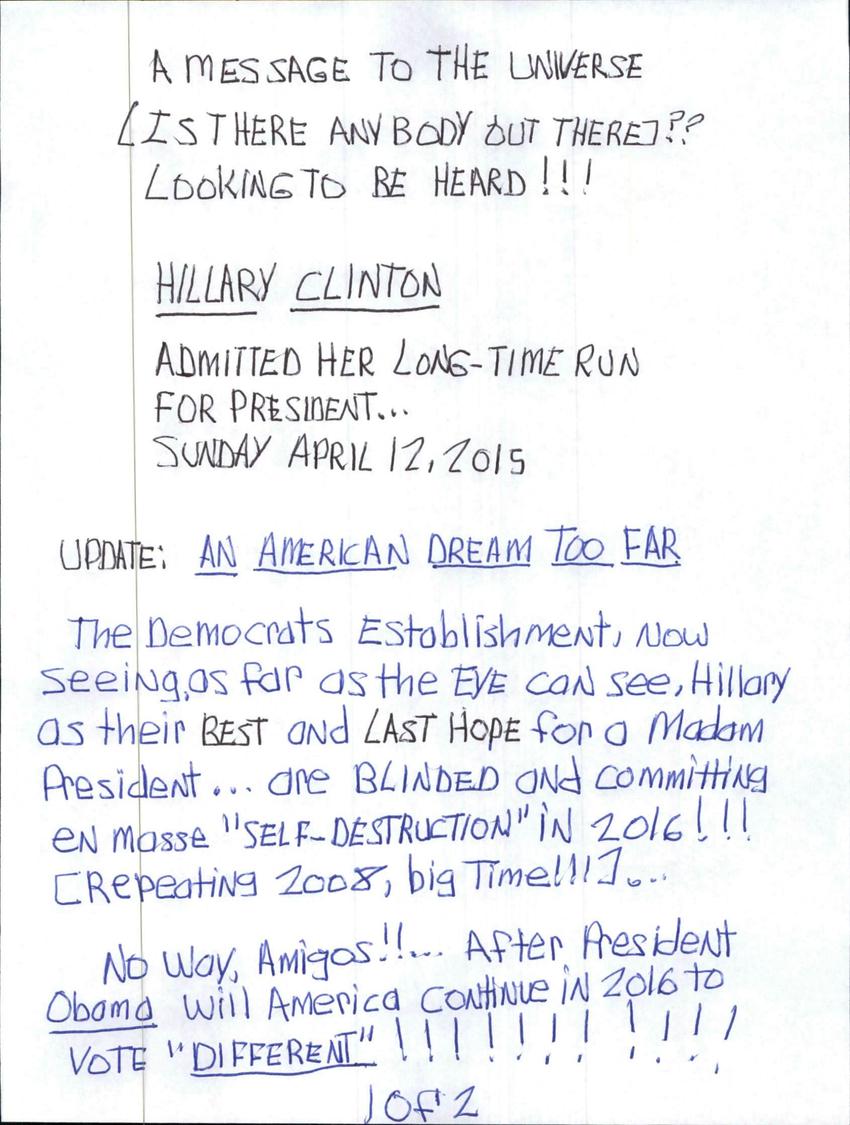 A MESSAGE TO THE UNIVERSE
[IS THERE ANYBODY OUT THERE]??
LOOKING TO BE HEARD!!!
HILLARY CLINTON
ADMITTED HER LONG-TIME RUN
FOR PRESIDENT...
SUNDAY APRIL 12, 2015
UPDATE: AN AMERICAN DREAM TOO FAR
The Democrats Establishment, Now
seeing, as far as the EYE can see, Hillary
as their BEST and LAST HOPE for a Madam
President... are BLINDED and committing
en masse "SELF-DESTRUCTION" in 2016!!!
[Repeating 2008, big Time!!!]...
No Way, Amigos!!... After President
Obama will America continue in 2016 to
VOTE "DIFFERENT"!!!!!!!!!!!!
1 of 2